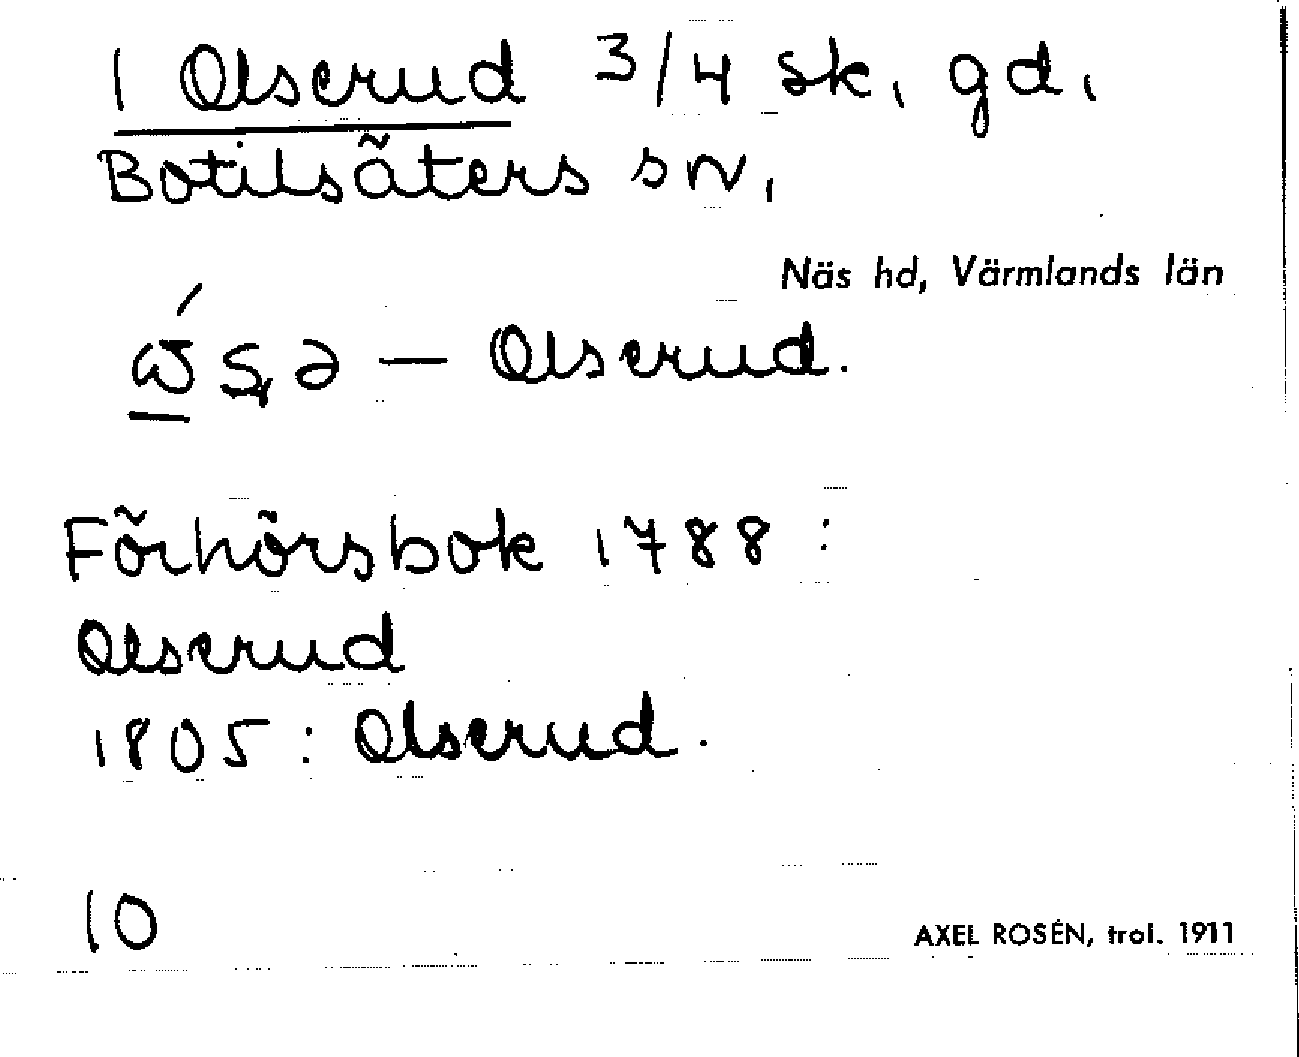 1 Olserud 3/4 sk, gd,
Botilsäters sn,
Näs hd, Värmlands län
— Olserud.
Förhörsbok 1788 :
Olserud
1805 : Olserud.
10
AXEL ROSÉN, trol. 1911